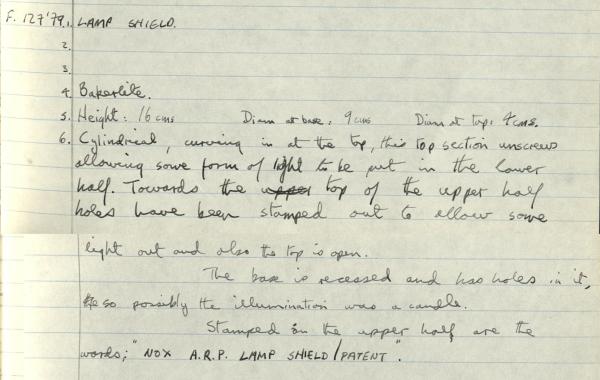 F. 127'79. 1. LAMP SHIELD.
2.
3.
4. Bakerlite.
5. Height: 16 cms Diam at base: 9 cms Diam at top: 4 cms.
6. Cylindrical, curving in at the top, this top section unscrews
allowing some form of light to be put in the lower
half. Towards the upper top of the upper half
holes have been stamped out to allow some
light out and also the top is open.
The base is recessed and has holes in it,
so possibly the illumination was a candle.
Stamped on the upper half are the
words; "NOX A.R.P. LAMP SHIELD/PATENT".